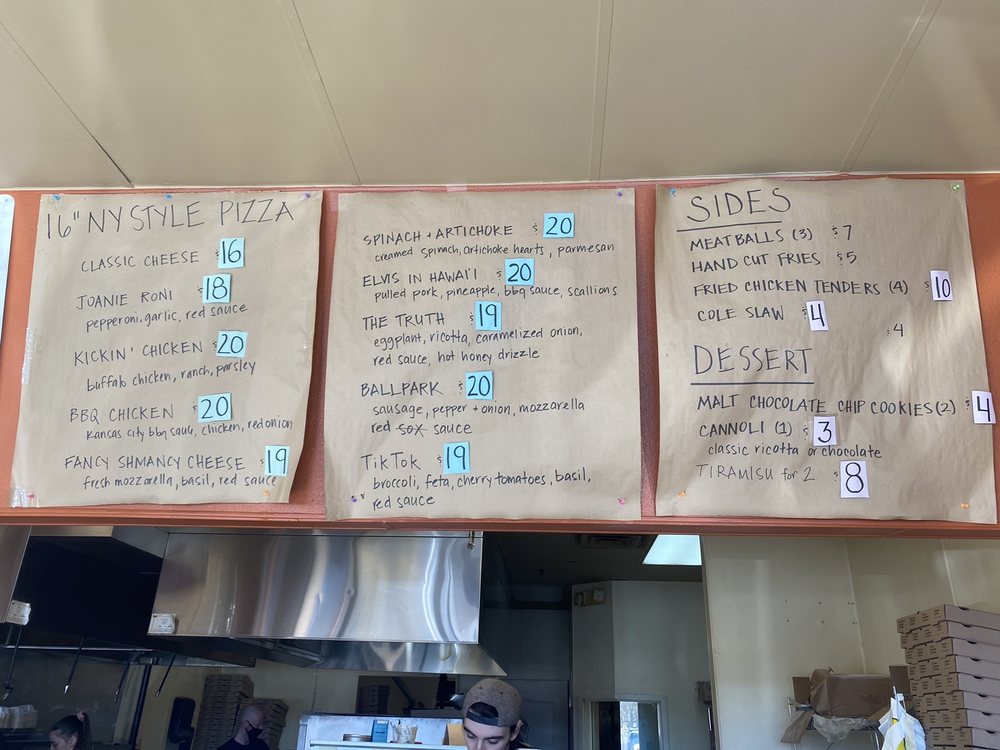 16" NY STYLE PIZZA
CLASSIC CHEESE $16
JOANIE RONI $18
pepperoni, garlic, red sauce
KICKIN' CHICKEN $20
buffalo chicken, ranch, parsley
BBQ CHICKEN $20
Kansas City bbq sauce, chicken, red onion
FANCY SHMANCY CHEESE $19
fresh mozzarella, basil, red sauce
SPINACH + ARTICHOKE $20
creamed spinach, artichoke hearts, parmesan
ELVIS IN HAWAI'I $20
pulled pork, pineapple, bbq sauce, scallions
THE TRUTH $19
eggplant, ricotta, caramelized onion,
red sauce, hot honey drizzle
BALLPARK $20
sausage, pepper + onion, mozzarella
red sox sauce
TikTok $19
broccoli, feta, cherry tomatoes, basil,
red sauce
SIDES
MEATBALLS (3) $7
HAND CUT FRIES $5
FRIED CHICKEN TENDERS (4) $10
COLE SLAW $4
$4
DESSERT
MALT CHOCOLATE CHIP COOKIES (2) $4
CANNOLI (1) $3
classic ricotta or chocolate
TIRAMISU for 2 $8